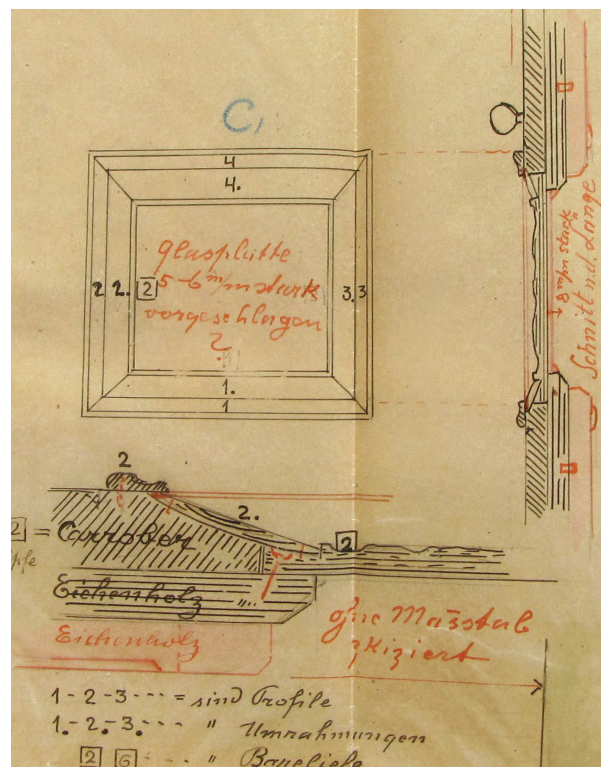 C,
4
4.
2 2. 2
glasplatte
5-6 m/m stark
vorgeschlagen
?
3. 3
1.
1
8 m/m stark
Schnitt n. d. Länge
2
2.
2
2 =
Carrober
Eichenholz
Eichenholz
ohne Maßstab
skiziert
1-2-3--- = sind Profile
1.-2.-3.--- " Umrahmungen
2 6 --- " Bareliefe